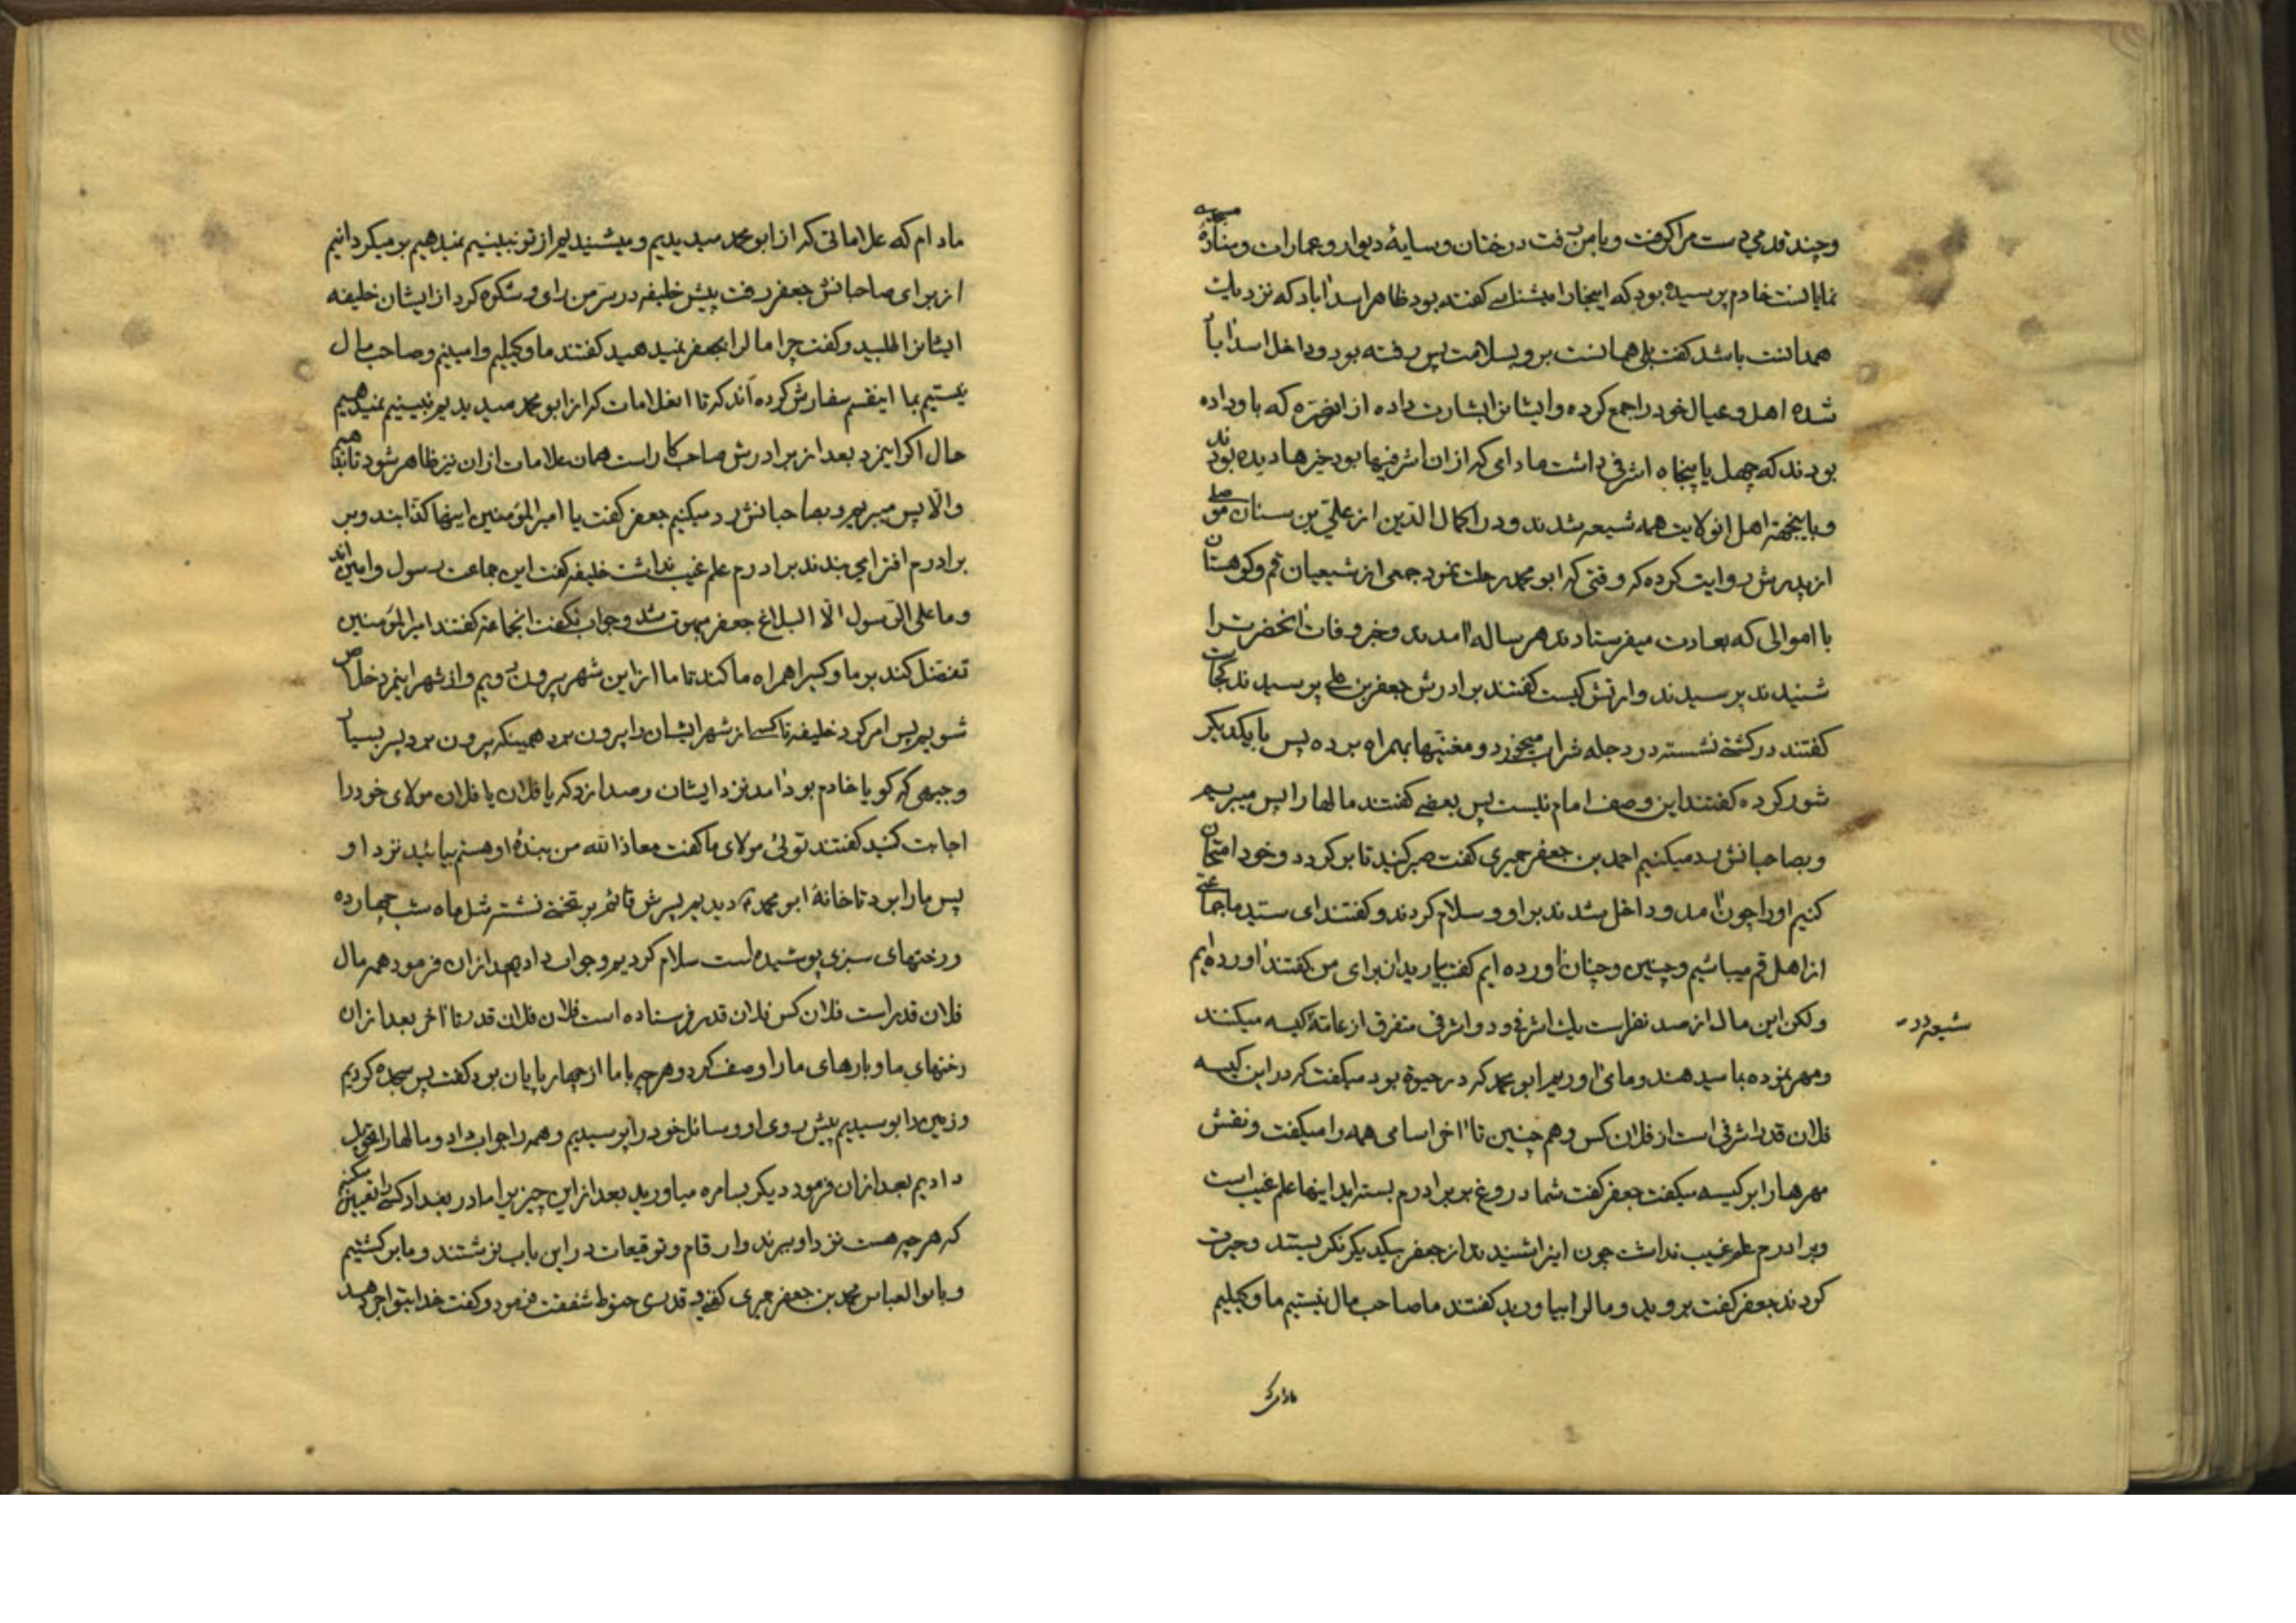 وچند قدمی دست مرا گرفت وبا من رفت درختان وسایهٔ دیوار وعمارات ومنارهٔ مسجد
نمایانست خادم پرسیده بود که اینجا را میشناسے گفته بود ظاهرا سدآباد که نزدیک
همدانست باشد گفت بلی همانست برو بسلامت پس رفته بود وداخل اسدآباد
شده اهل وعیال خود را جمع کرده وایشانرا بشارت داده از آن صرّه که باو داده
بودند که چهل یا پنجاه اشرفی داشت مادامی که از آن اشرفیها بود خیرها دیده بودند
وباینجهة اهل انولایت همه شیعه شدند ودر اکمال الدین از علی بن سنان موصلی
از پدرش روایت کرده که وقتی که ابو محمد رحلت نمود جمعی از شیعیان قم وکوهستان
با اموالی که بعادت میفرستادند هر ساله آمدند وخبر وفات آنحضرترا
شنیدند پرسیدند وارثش کیست گفتند برادرش جعفر بن علی پرسیدند کجاست
گفتند در کشتی نشسته در دجله شراب میخورد ومغنیها بهمراه برده پس با یکدیگر
شور کرده گفتند این وصف امام نیست پس بعضے گفتند مالها را پس میبریم
وبصاحبانش رد میکنیم احمد بن جعفر حمیری گفت صبر کنید تا برگردد وخود امتحان
کنیم او را چون آمد وداخل شدند بر او وسلام کردند وگفتند ای سید ما جماعتے
از اهل قم میباشیم وچنین وچنان آورده ایم گفت بیاریدان برای من گفتند آورده ایم
ولکن این مال از صد نفر است یك اشرفی ودو اشرفی متفرق از عامّهٔ کیسه میکنند
شیعه در
ومهر نموده بما میدهند وما می آوریم ابو محمد که در حیوة بود میگفت که در این کیسه
فلان قدر اشرفی است از فلان کس وهم چنین تا آخر اسامی همه را میگفت ونقش
مهرها را بر کیسه میگفت جعفر گفت شما دروغ بر برادرم بسته اید اینها علم غیب است
وبرادرم علم غیب نداشت چون اینرا شنیدند از جعفر بیکدیگر نگریستند وحیرت
کردند جعفر گفت بروید ومال را بیاورید گفتند ما صاحب مال نیستیم ما وکیلیم
مادام که
مادام که علاماتی که از ابو محمد میدیدیم ومیشنیدیم از تو نبینیم نمیدهیم بر میگردانیم
از برای صاحبانش جعفر رفت پیش خلیفه در سرّ من رای وشکوه کرد از ایشان خلیفه
ایشانرا طلبید وگفت چرا مال را بجعفر نمیدهید گفتند ما وکیلیم وامینیم وصاحب مال
نیستیم بما اینقسم سفارش کرده اند که تا آنعلامات که از ابو محمد میدیدیم نبینیم نمیدهیم
حال اگر اینمرد بعد از برادرش صاحب کار است همان علامات از ان نیز ظاهر شود تا بدهیم
والّا پس میبریم وبصاحبانش رد میکنیم جعفر گفت یا امیر المؤمنین اینها کذابند وبر
برادرم افترا می بندند برادرم علم غیب نداشت خلیفه گفت این جماعت رسول وامین اند
وما علی الرّسول الّا البلاغ جعفر مبهوت شد وجواب نگفت انجماعة گفتند امیر المؤمنین
تفضل کند بر ما وکسیرا همراه ما کند تا ما از این شهر بیرون رویم واز شهر اینمرد خلاص
شویم پس امر کرد خلیفه تا کسے از شهر ایشان را بیرون برد همینکه بیرون برد پسر بسیار
وجیهی که گویا خادم بود آمد نزد ایشان وصدا زد که یا فلان یا فلان مولای خود را
اجابت کنید گفتند توئی مولای ما گفت معاذ الله من بندهٔ او هستم بیائید نزد او
پس ما را برد تا خانهٔ ابو محمد دیدیم پسرش قائم بر تختے نشسته مثل ماه شب چهارده
ورختهای سبزی پوشیده است سلام کردیم وجواب داد بعد از ان فرمود همه مال
فلان قدر است فلان کس فلان قدر فرستاده است فلان فلان قدر تا آخر بعد از ان
رختهای ما وبارهای ما را وصف کرد وهر چه با ما از چهار پایان بود گفت پس سجده کردیم
وزمین را بوسیدیم پیش روی او ومسائل خود را پرسیدیم وهمه را جواب داد ومالها را تحویل
دادیم بعد از ان فرمود دیگر بسامره میاورید بعد از این چیز برا ما در بغداد کسے را تعیین میکنیم
که هر چه هست نزد او ببرند وارقام وتوقیعات در این باب نوشتند وما برگشتیم
وبابو العباس محمد بن جعفر حمیری کفنے وقدری حنوط شفقت فرمود وگفت خدا بتو اجر دهد